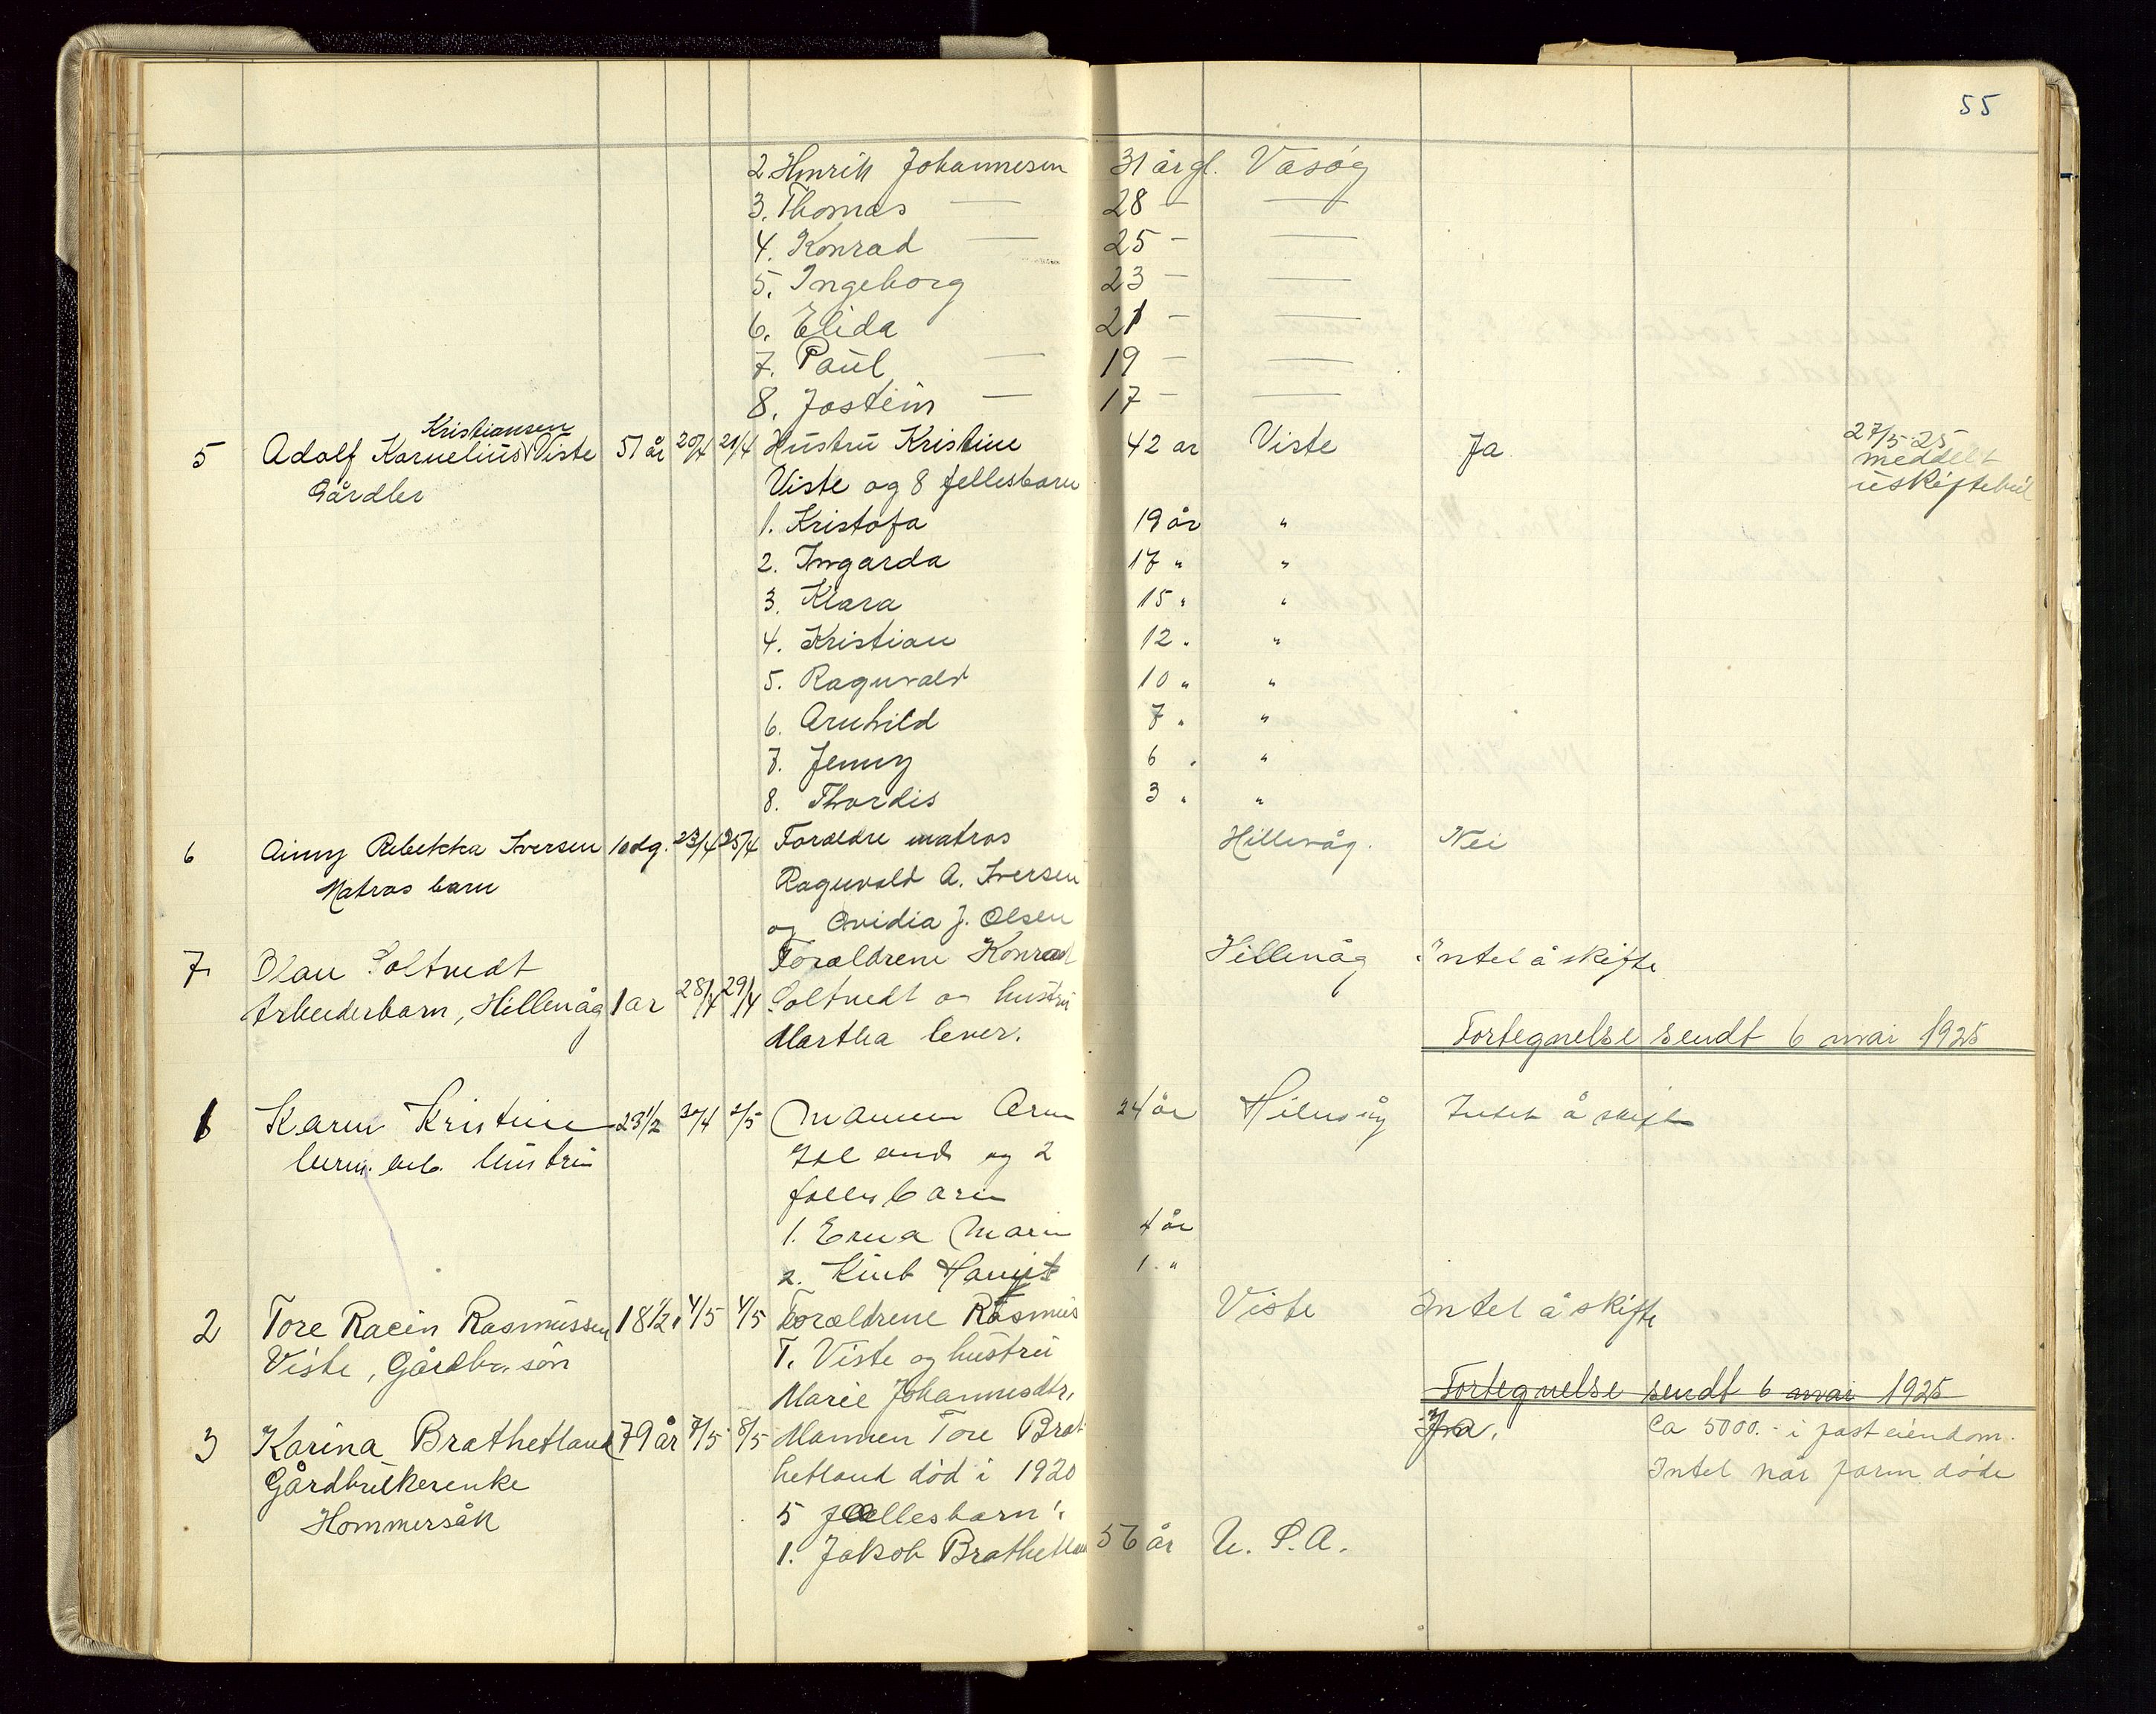 55
2. Henrik Johannesen 31 år gl. Vasøg
3. Thomas — 28 — —
4. Konrad — 25 — —
5. Ingeborg 23 — —
6. Elida 21 — —
7. Paul — 19 — —
8. Jostein — 17 — —
Kristiansen
5 Adolf Kornelius Viste 51 år 20/4 21/4 Hustru Kristine 42 ar Viste Ja 27/5 25
Gårdbr Viste og 8 fellesbarn meddelt
uskiftebevil
1. Kristofa 19 år "
2. Ingarda 17 " "
3. Klara 15 " "
4. Kristian 12 " "
5. Ragnvald 10 " "
6. Arnhild 7 " "
7. Jenny 6 " "
8. Thordis 3 " "
6 Ainny Rebekka Iversen 10 dg. 23/4 25/4 Foraldre matros Hillevåg. Nei
Matros barn Ragnvald A. Iversen
og Ovidia J. Olsen
7 Olau Soltvedt Foraldrene Konrad Hillevåg Intel å skifte
Arbeiderbarn, Hillevåg 1 ar 28/4 29/4 Soltvedt og hustru
Martha lever.
Fortegnelse sendt 6 mai 1925
1 Karen Kristine 23 1/2 30/4 2/5 Mannen Arne 24 år Hillevåg Intet å skifte
hustru og 2
fellesbarn
1. Erna Marie 4 år
2. 1 "
2 Tore Racin Rasmussen 18 1/2 4/5 4/5 Foraldrene Rasmus Viste Intel å skifte
Viste, Gårdbr. søn T. Viste og hustru
Marie Johannesdtr.
Fortegnelse sendt 6 mai 1925
3 Karina Brathetland 79 år 7/5 8/5 Mannen Tore Brat- Ja. Ca 5000.- i fast eiendom.
Gårdbrukerenke hetland død i 1920 Intel når farm. døde
Hommersåk 5 fællesbarn:
1. Jakob Brathetland 56 år U. S. A.